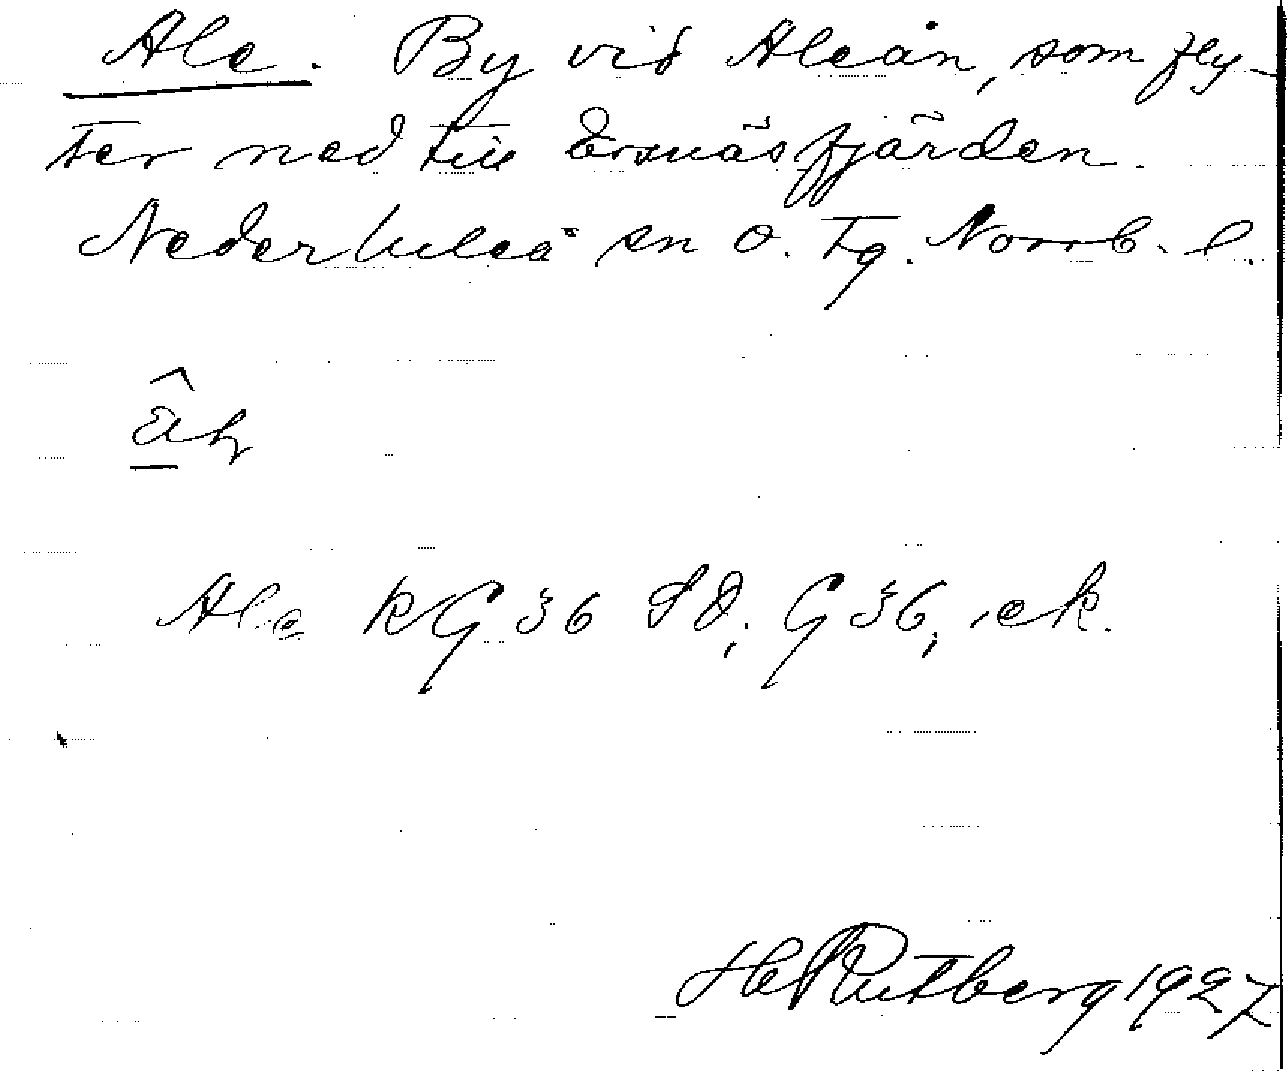 Ale. By vid Aleån, som fly-
ter ned till Ersnäsfjärden.
Nederluleå sn o. tg. Norrb. l.
Ale KG 36 SD; G 36, ek.
H Rutberg 1927